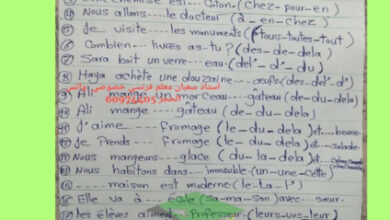 Cette chemise est ..... coton (chez - pour - en)
④ Nous allons .... le docteur (à - en - chez)
⑤ Je visite --- les monuments (tous - toutes - tout)
⑥ Combien .... livres as-tu ? (des - de - dela)
⑦ Sara boit un verre --- eau (del' - d' - du)
⑧ Haya achète une douzaine .... œufs (des - del' - d')
⑨ Ali mange un morceau --- gâteau (de - du - dela)
استاذ شعبان معلم فرنسي خصوصي
⑩ Ali mange ---- gâteau (de - du - dela)
⑪ J'aime .... fromage (le - du - dela) et
⑫ Je Prends --- fromage (le - du - dela) et .... salade
⑬ Nous mangeons --- glace (du - la - dela)
⑭ Nous habitons dans ---- immeuble (un - une - cette)
⑮ ..... maison est moderne (le - La - l')
⑯ Elle va à --- école (sa - ma - son) avec .... sœur
⑰ Les élèves aiment .... professeur (leurs - vos - leur)